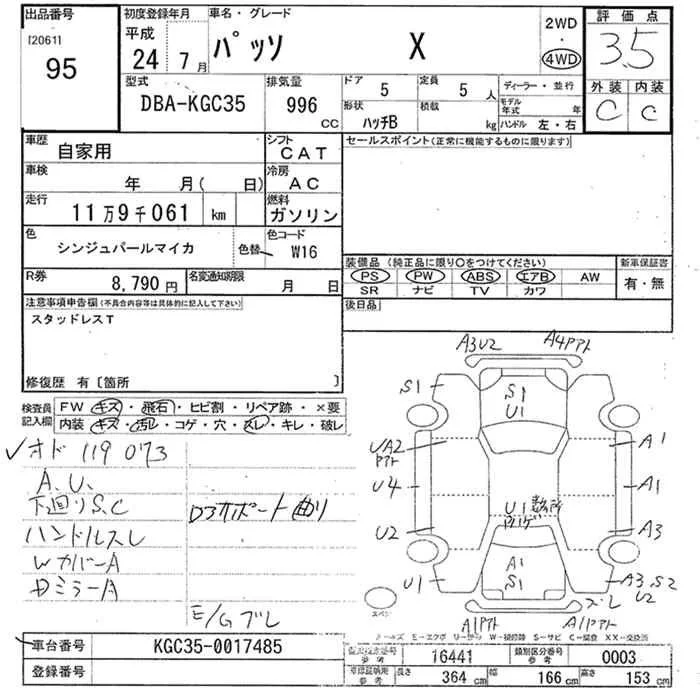 出品番号
[2061]
95
初度登録年月
平成
24 7 月
車名・グレード
パッソ X
2WD
・
4WD
評価点
3.5
型式
DBA-KGC35
排気量
996
CC
ドア
5
定員
5 人
形状
ハッチB
積載
kg
ディーラー・並行
モデル年式 年
ハンドル 左・右
外装 内装
C C
車歴
自家用
シフト
CAT
車検
年 月( 日)
冷房
AC
走行
11万9千061 km
燃料
ガソリン
色
シンジュパールマイカ
色替
色コード
W16
R券
8,790 円
名変通知期限
月 日
セールスポイント(正常に機能するものに限ります)
装備品(純正品に限り○をつけてください)
PS PW ABS エアB AW
SR ナビ TV カワ
新車保証書
有・無
後日品
注意事項申告欄(不具合内容等は具体的に記入して下さい)
スタッドレスT
修復歴 有[箇所 ]
検査員記入欄
FW キズ・飛石・ヒビ割・リペア跡・×要
内装 キズ・汚レ・コゲ・穴・スレ・キレ・破レ
オド 119073
A.U.
下廻りS.C
ハンドルスレ
WカバーA
DミラーA
D3サポート曲り
E/Gブレ
A3U2 A4アアト
S1
S1
U1
UA2
アアト
A1
U4
A1
U2
U1
A3
A1
S1
U1
A3.S2
U2
スレ
スペア
A1アアト A1アアト
車台番号
KGC35-0017485
登録番号
参考
16441
類別区分番号
参考
0003
参考
長さ
364 cm
幅
166 cm
高さ
153 cm